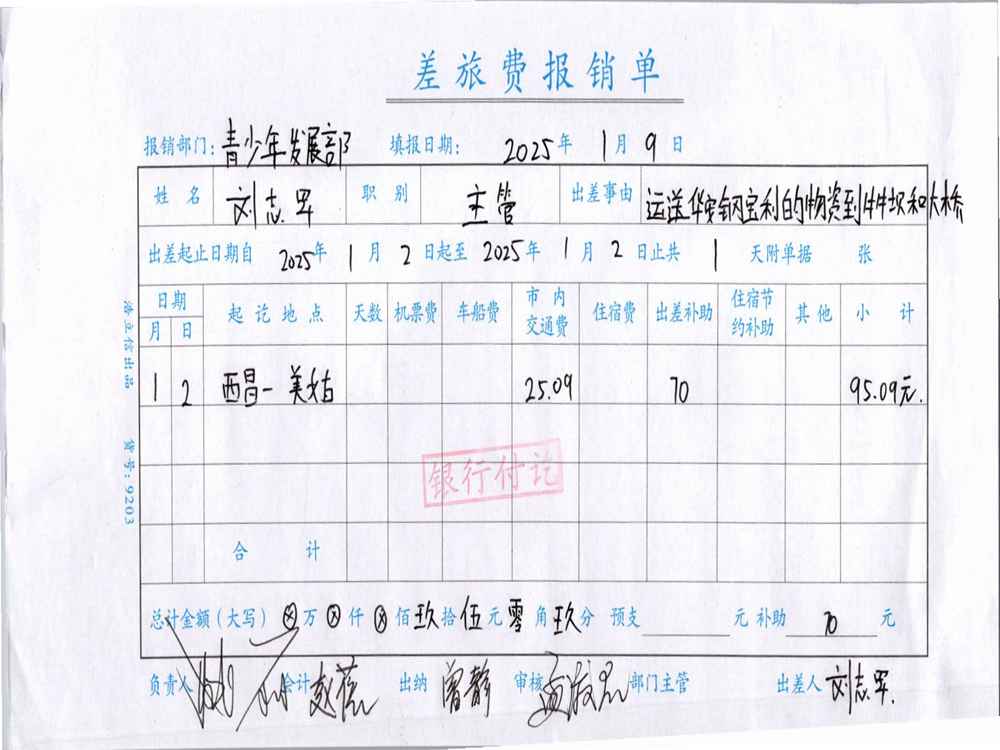 差旅费报销单
报销部门：青少年发展部 填报日期： 2025年 1月 9日
姓名 刘志军 职别 主管 出差事由 运送华安钢宝利的物资到 和大桥
出差起止日期自 2025年 1月 2日起至 2025年 1月 2日止共 1 天附单据 张
日期 起讫地点 天数 机票费 车船费 市内交通费 住宿费 出差补助 住宿节约补助 其他 小计
月 日
1 2 西昌-美姑 25.09 70 95.09元.
银行付讫
合计
总计金额(大写) ⊗万 ⊗仟 ⊗佰 玖拾 伍元 零角 玖分 预支 元 补助 70 元
负责人 会计 出纳 曾静 审核 部门主管 出差人 刘志军.
浩立信出品 货号：9203